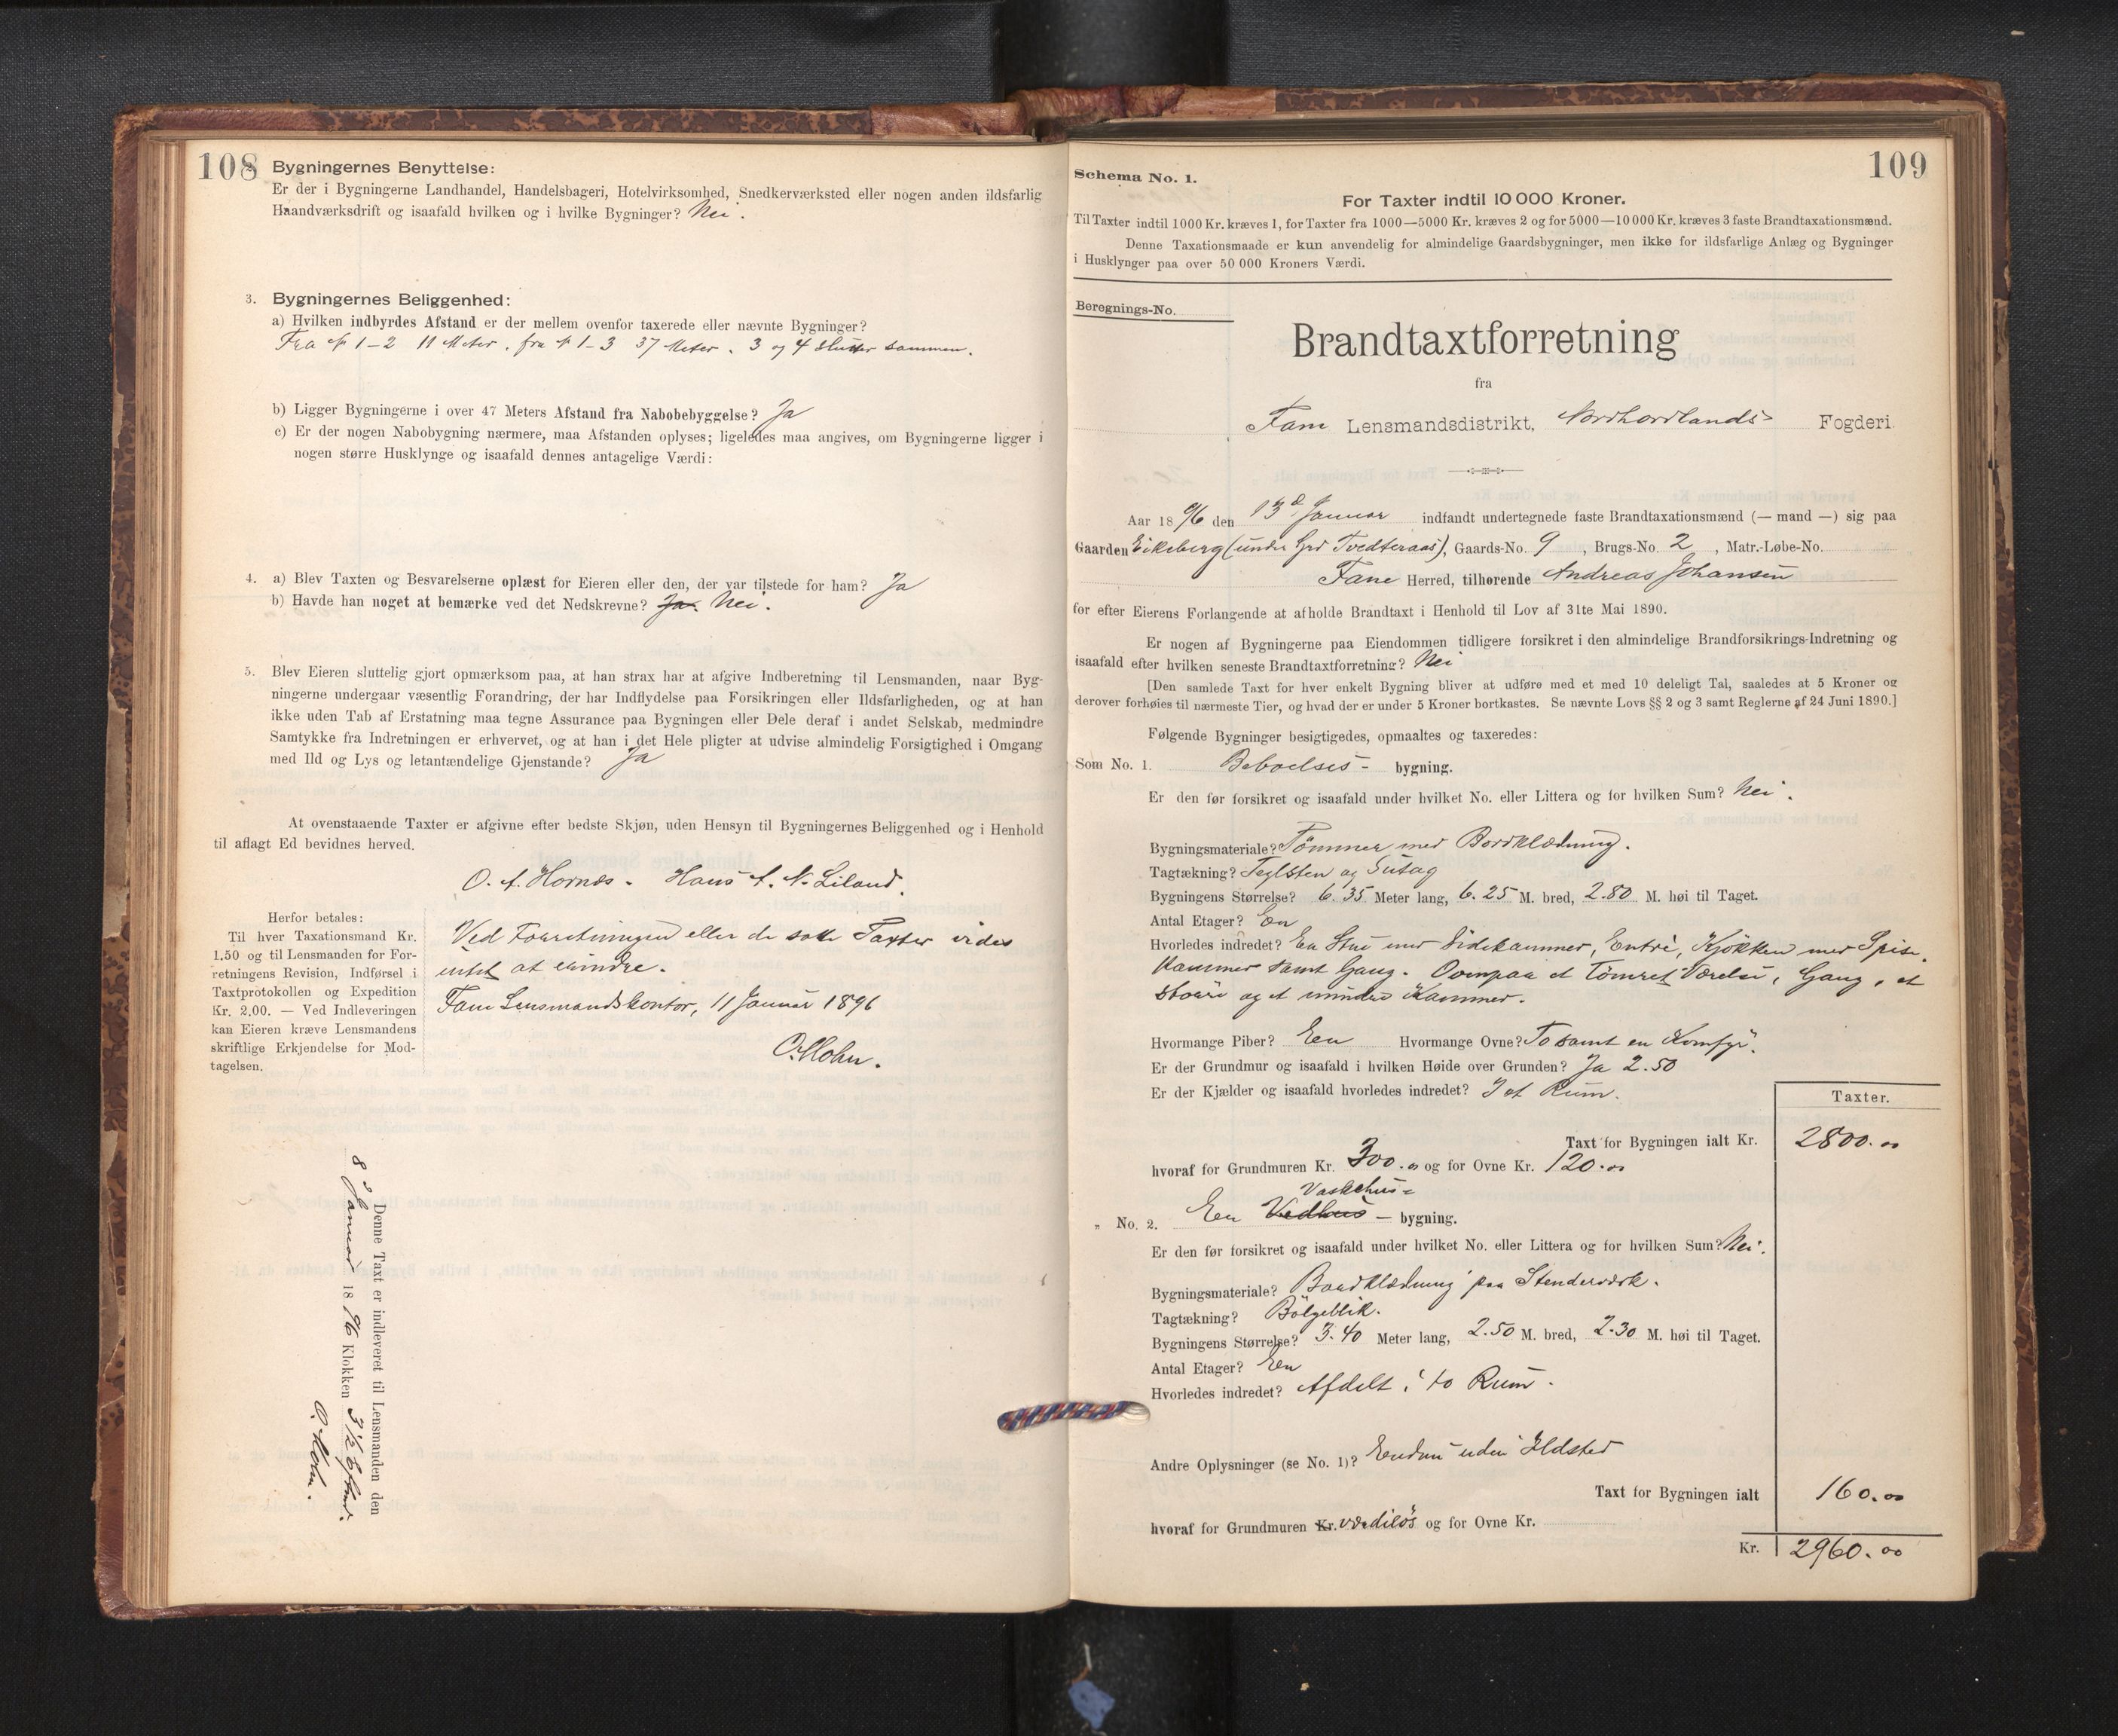 108
Bygningernes Benyttelse:
Er der i Bygningerne Landhandel, Handelsbageri, Hotelvirksomhed, Snedkerværksted eller nogen anden ildsfarlig
Haandværksdrift og isaafald hvilken og i hvilke Bygninger? Nei.
3. Bygningernes Beliggenhed:
a) Hvilken indbyrdes Afstand er der mellem ovenfor taxerede eller nævnte Bygninger?
Fra № 1-2 11 Meter, fra № 1-3 37 Meter. 3 og 4 slutter sammen.
b) Ligger Bygningerne i over 47 Meters Afstand fra Nabobebyggelse? Ja
c) Er der nogen Nabobygning nærmere, maa Afstanden oplyses; ligeledes maa angives, om Bygningerne ligger i
nogen større Husklynge og isaafald dennes antagelige Værdi:
4. a) Blev Taxten og Besvarelserne oplæst for Eieren eller den, der var tilstede for ham? Ja
b) Havde han noget at bemærke ved det Nedskrevne? Ja. Nei.
5. Blev Eieren sluttelig gjort opmærksom paa, at han strax har at afgive Indberetning til Lensmanden, naar Byg-
ningerne undergaar væsentlig Forandring, der har Indflydelse paa Forsikringen eller Ildsfarligheden, og at han
ikke uden Tab af Erstatning maa tegne Assurance paa Bygningen eller Dele deraf i andet Selskab, medmindre
Samtykke fra Indretningen er erhvervet, og at han i det Hele pligter at udvise almindelig Forsigtighed i Omgang
med Ild og Lys og letantændelige Gjenstande? Ja
At ovenstaaende Taxter er afgivne efter bedste Skjøn, uden Hensyn til Bygningernes Beliggenhed og i Henhold
til aflagt Ed bevidnes herved.
O. A. Hornæs. Hans A. N. Liland.
Herfor betales:
Til hver Taxationsmand Kr.
1.50 og til Lensmanden for For-
retningens Revision, Indførsel i
Taxtprotokollen og Expedition
Kr. 2.00. — Ved Indleveringen
kan Eieren kræve Lensmandens
skriftlige Erkjendelse for Mod-
tagelsen.
Ved Forretningen eller de satte Taxter vides
intet at erindre.
Fane Lensmandskontor, 11 Januar 1896
O. Mohn.
Denne Taxt er indleveret til Lensmanden den
8d Januar 1896 Klokken 3 1/2 Efterm.
O. Mohn.
109
Schema No. 1.
For Taxter indtil 10 000 Kroner.
Til Taxter indtil 1000 Kr. kræves 1, for Taxter fra 1000—5000 Kr. kræves 2 og for 5000—10 000 Kr. kræves 3 faste Brandtaxationsmænd.
Denne Taxationsmaade er kun anvendelig for almindelige Gaardsbygninger, men ikke for ildsfarlige Anlæg og Bygninger
i Husklynger paa over 50 000 Kroners Værdi.
Beregnings-No.
Brandtaxtforretning
fra
Fane Lensmandsdistrikt, Nordhordlands Fogderi.
Aar 1896 den 13d Januar indfandt undertegnede faste Brandtaxationsmænd (— mand —) sig paa
Gaarden Eikeberg (under Grd Tvedteraas), Gaards-No. 9, Brugs-No. 2, Matr.-Løbe-No.
Fane Herred, tilhørende Andreas Johansen
for efter Eierens Forlangende at afholde Brandtaxt i Henhold til Lov af 31te Mai 1890.
Er nogen af Bygningerne paa Eiendommen tidligere forsikret i den almindelige Brandforsikrings-Indretning og
isaafald efter hvilken seneste Brandtaxtforretning? Nei
[Den samlede Taxt for hver enkelt Bygning bliver at udføre med et med 10 deleligt Tal, saaledes at 5 Kroner og
derover forhøies til nærmeste Tier, og hvad der er under 5 Kroner bortkastes. Se nævnte Lovs §§ 2 og 3 samt Reglerne af 24 Juni 1890.]
Følgende Bygninger besigtigedes, opmaaltes og taxeredes:
Som No. 1. Beboelses- bygning.
Er den før forsikret og isaafald under hvilket No. eller Littera og for hvilken Sum? Nei.
Bygningsmateriale? Tömmer med Bordklædning.
Tagtækning? Teglsten og Sutag
Bygningens Størrelse? 6.35 Meter lang, 6.25 M. bred, 2.80 M. høi til Taget.
Antal Etager? En
Hvorledes indredet? En Stue med Sidekammer, Entré, Kjökken med Spise-
kammer samt Gang. Ovenpaa et Tömret Værelse, Gang, et
större og et mindre Kammer.
Hvormange Piber? Een Hvormange Ovne? To samt en Komfyr.
Er der Grundmur og isaafald i hvilken Høide over Grunden? Ja 2.50
Er der Kjælder og isaafald hvorledes indredet? I et Rum.
Taxter.
Taxt for Bygningen ialt Kr. 2800.00
hvoraf for Grundmuren Kr. 300.00 og for Ovne Kr. 120.00
Vaskehus-
„ No. 2. Een Vedhus - bygning.
Er den før forsikret og isaafald under hvilket No. eller Littera og for hvilken Sum? Nei.
Bygningsmateriale? Bordklædning paa Stenderværk.
Tagtækning? Bölgeblik.
Bygningens Størrelse? 3.40 Meter lang, 2.50 M. bred, 2.30 M. høi til Taget.
Antal Etager? Een
Hvorledes indredet? Afdelt i to Rum.
Andre Oplysninger (se No. 1)? Endnu uden Ildsted
Taxt for Bygningen ialt 160.00
hvoraf for Grundmuren Kr. værdilös og for Ovne Kr.
Kr. 2960.00